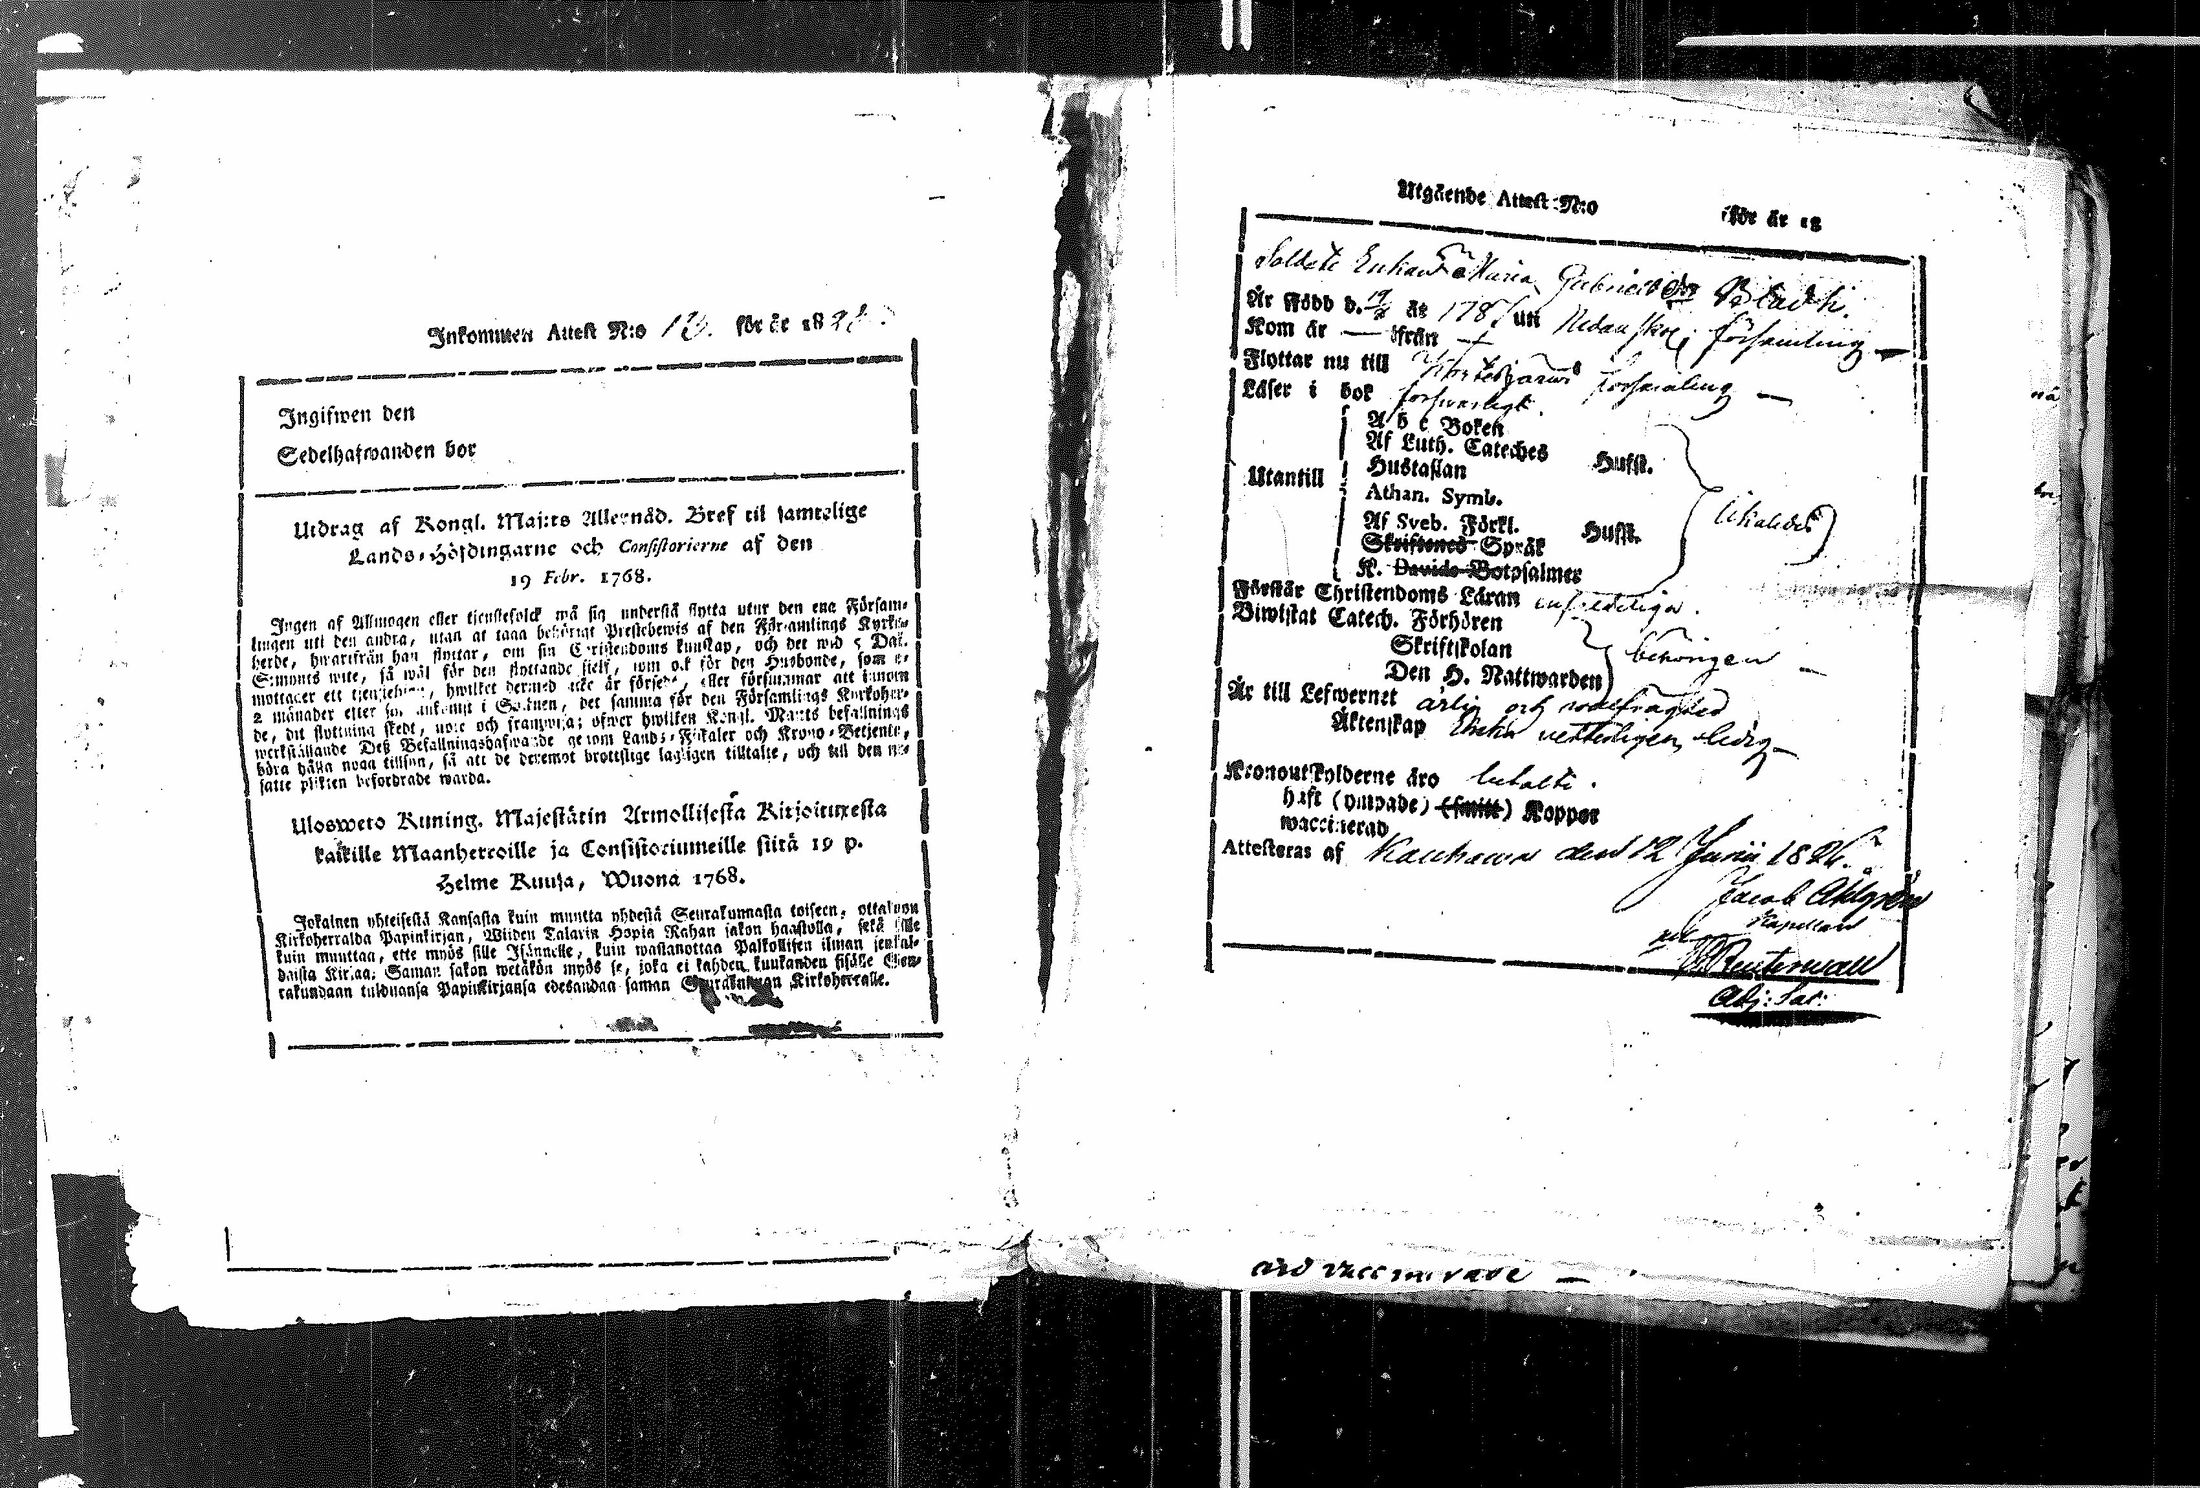 Inkommen Attest N:o 13. för år 182
Ingifwen den
Sedelhafwanden bor
Utdrag af Kongl. Maj:ts Allernåd. Bref til samtelige
Lands-Höfdingarne och Consistorierne af den
19 Febr. 1768.
Ingen af Allmogen eller tjenstefolck må sig understå flytta utur den ena Försam-
lingen uti den andra, utan at taga behörigt Prestebewis af den Församlings Kyrko-
herde, hwarifrån han flyttar, om sin Christendoms kunskap, och det wid 5 Dal.
S:mynts wite, så wäl för den flyttande sjelf, som ock för den Husbonde, som e-
mottager ett tjenstehion, hwilket dermed icke är försedt, eller försummar att innom
2 månader efter sin ankomst i Socknen, det samma för den Församlings Kyrkoher-
de, dit flyttning skedt, upte och framwisa; öfwer hwilken Kongl. Maj:ts befallnings
werkställande Deß Befallningshafwande genom Lands-Fiskaler och Krono-Betjente,
böra hålla noga tillsyn, så att de deremot brottslige lagligen tilltalte, och till den ut-
satte plikten befordrade warda.
Ulosweto Kuning. Majestätin Armollisesta Kirjoituxesta
kaikille Maanherroille ja Consistoriumeille siitä 19 p.
Helme Kuusa, Wuona 1768.
Jokainen yhteisestä Kansasta kuin muutta yhdestä Seurakunnasta toiseen, ottakoon
Kirkoherralda Papinkirjan, Wiiden Talarin Hopia Rahan sakon haastolla, sekä sille
kuin muuttaa, ette myös sille Isännelle, kuin wastanottaa Palkollisen ilman senkal-
daista Kirjaa; Saman sakon wetäkön myös se, joka ei kahden kuukanden sisälle Seu-
rakundaan tulduansa Papinkirjansa edesandaa saman Seurakunnan Kirkoherralle.
Utgående Attest N:o för år 18
Soldate Enkan Maria Gabrielsdr
Är Född d. 19 år 178 uti församling —
Kom år — ifrån —
Flyttar nu till Kortesjärwi församling —
Läser i bok försvarligt.
A b c Boken
Af Luth. Cateches Husst.
Utantill Hustaflan
Athan. Symb.
Af Sveb. Förkl. Husst.
Skriftenes Språk
K. Davids Botpsalmer
likaledes
Förstår Christendoms Läran enfaldeligen.
Biwistat Catech. Förhören
Skriftskolan behörigen —
Den H. Nattwarden
Är till Lefwernet ärlig och wälfrägdad
Äktenskap Enka vetterligen ledig —
Kronoutskylderne äro betalte.
haft (ympade) (smitt) Koppor
waccinerad
Attesteras af Kauhava den 12 Junii 1826.
Jacob Ahlgren
Kapellan
Reuterwall
Adj: Sac: